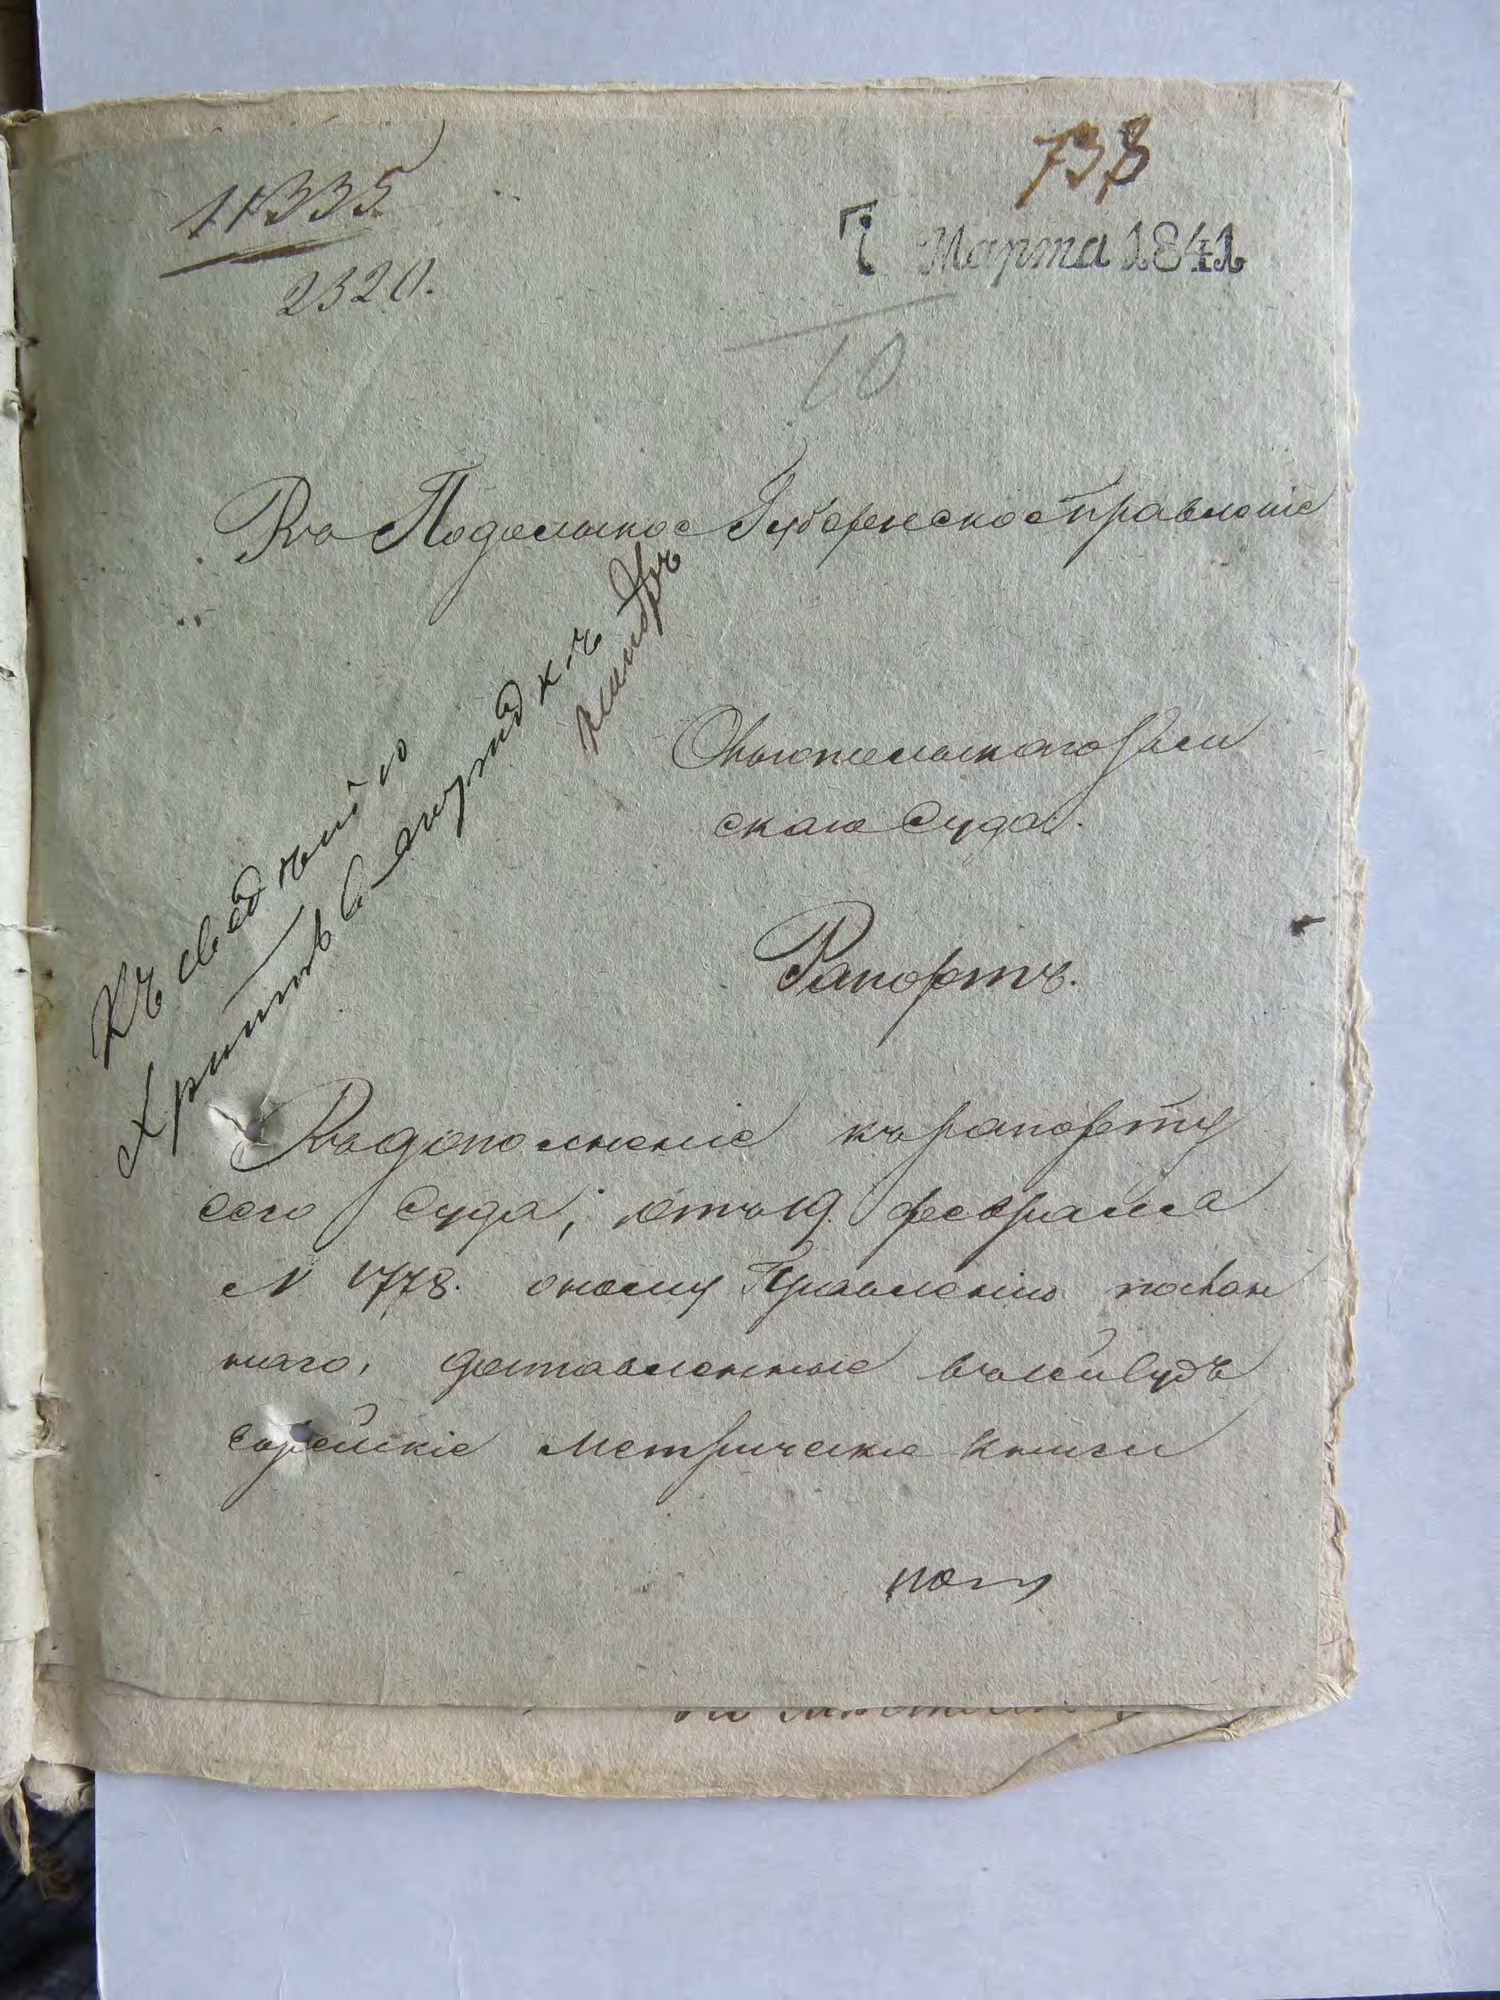 738
11335
2320.
7 Марта 1841
10
Въ Подольское Губернское Правленіе
Къ сведенію
къ
Ольгопольскаго Зем
скаго Суда.
Рапортъ.
Въ дополненіе къ рапорту
сего Суда, отъ 19 февраля
N 1778. оному Правленію послан
наго, доставленные въ сей Судъ
еврейскіе метрическіе книги